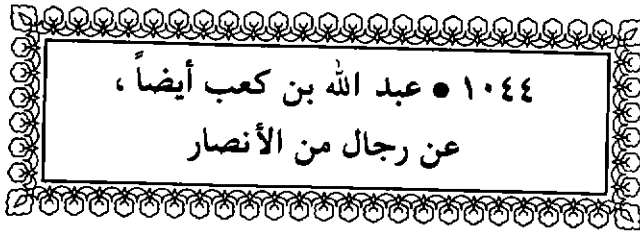 ١٠٤٤ ● عبد الله بن كعب أيضاً ،
عن رجال من الأنصار